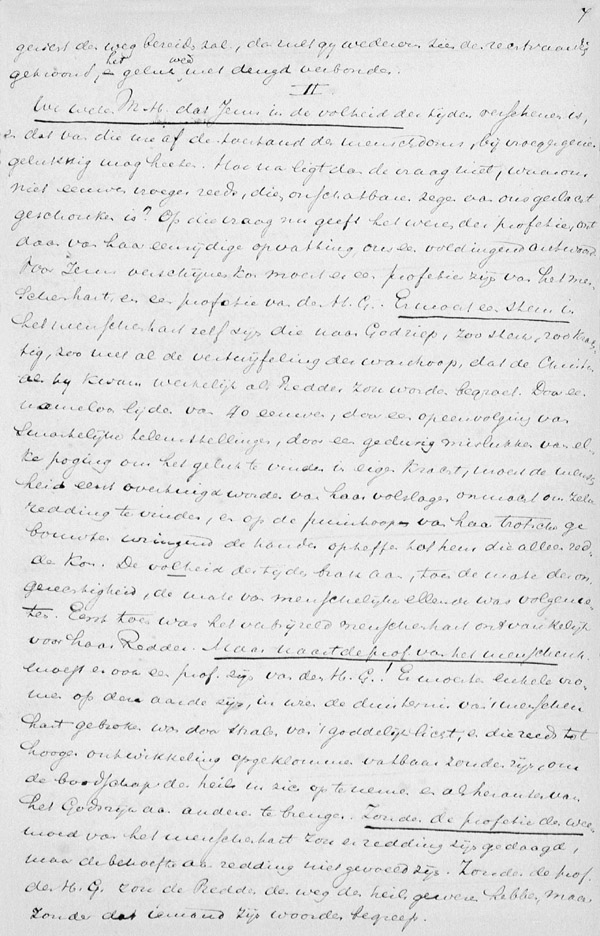 7
geviert den weg bereiden zal, dan zult gij wederom zien de rechtvaardig
gekroond, het geluk weer met deugd verbonden.
II
We weten M.H. dat Jezus in de volheid der tijden verschenen is,
en dat van die ure af de toestand der menschdoms, bij vroeger gezien
gelukkig mag heeten. Hoe na ligt dan de vraag niet, waarom
niet eeuwen vroeger reeds, die onschatbare zegen van ons geslacht
geschonken is? Op die vraag nu geeft het wezen der profetie,
daar van haar eenzijdige opvatting, ons een voldingend antwoord.
Voor Jezus verschijnen kon moest er een profetie zijn van het men-
schenhart, en een profetie van den H.G. Er moest een stem in
het menschenhart zelf zijn die naar God riep, zoo sterk, zoo krach-
tig, zoo met al de vertwijfeling der wanhoop, dat de Christus
als hij kwam werkelijk als Redder zou worden begroet. Door een
nameloos lijden van 40 eeuwen, door een opeenvolging van
smartelijke teleurstellingen, door een gedurig mislukken van el-
ke poging om het geluk te vinden in eigen kracht, moest de mensch
heid eerst overtuigd worden van haar volslagen onmacht om zelf
redding te vinden, en op de puinhoop van haar trotsche ge
bouwen wringend de handen opheffen tot hem die alleen red-
den kon. De volheid der tijden brak aan, toen de mate der on
gerechtigheid, de mate van menschelijke ellende was volgeme-
ten. Eerst toen was het verbrijzeld menschenhart ontvankelijk
voor haar Redder. Maar naast de prof. van het menschenh.
moest er ook een prof. zijn van den H.G.! Er moesten enkele vro-
men op deze aarde zijn, in wie de duisternis van 't menschen
hart gebroken was door stralen van 't goddelijk licht, en die reeds tot
hooger ontwikkeling opgeklommen vatbaar zouden zijn, om
de boodschap des heils in zich op te nemen en als herauten van
het Godsrijk aan anderen te brengen. Zonder de profetie der wee-
moed van het menschenhart zou er redding zijn gedaagd,
maar de behoefte aan redding niet gevoeld zijn. Zonder de prof.
des H.G. zou de Redder de weg des heils gewezen hebben, maar
zonder dat iemand zijn woorden begreep.